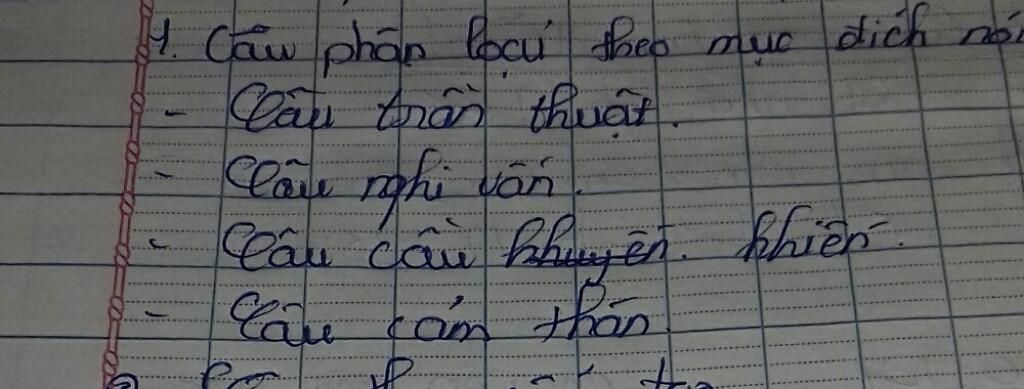 1. Câu phân loại theo mục đích nói
- Câu trần thuật.
- Câu nghi vấn.
- Câu cầu khuyến. khiến.
- Câu cảm thán